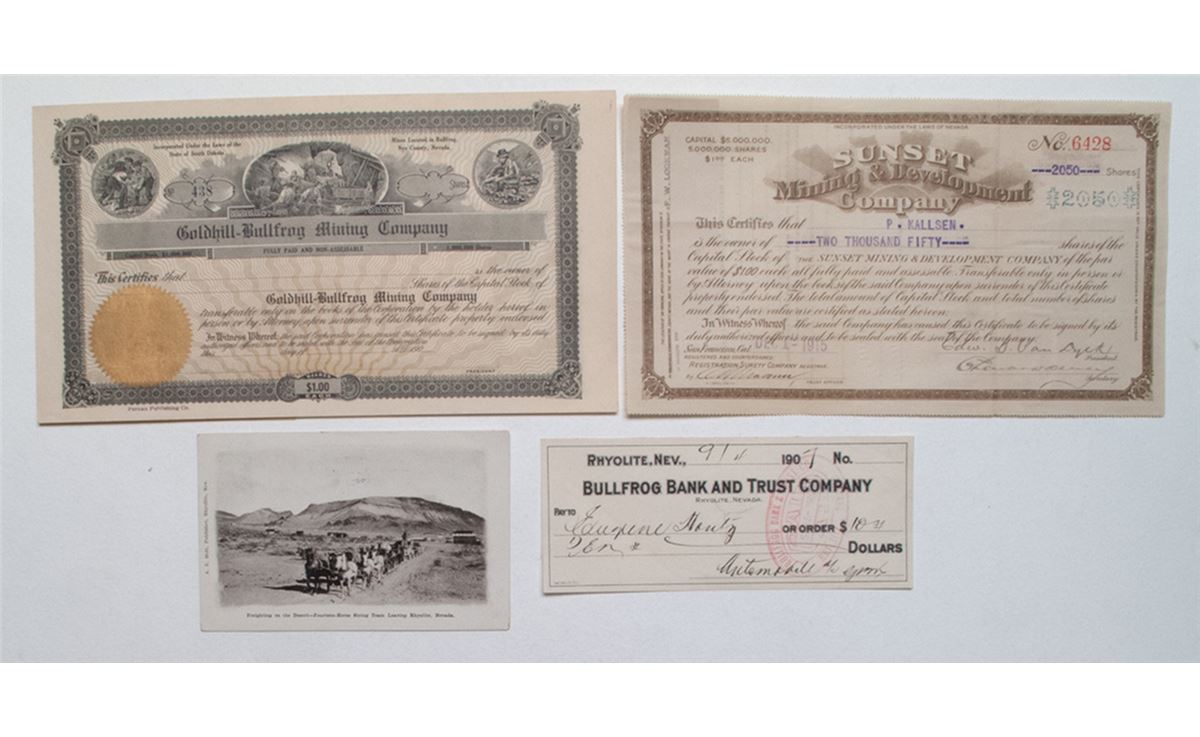 Incorporated Under the Laws of the
State of South Dakota
Mines Located in Bullfrog,
Nye County, Nevada.
438
Shares
Goldhill-Bullfrog Mining Company
FULLY PAID AND NON-ASSESSABLE
This Certifies that
is the owner of
Shares of the Capital Stock of
Goldhill-Bullfrog Mining Company
transferable only on the books of the Corporation by the holder hereof in
person or by Attorney upon surrender of this Certificate properly endorsed.
In Witness Whereof, the said Corporation has caused this Certificate to be signed by its duly
PRESIDENT
$1.00
EACH
Publishing Co.
INCORPORATED UNDER THE LAWS OF NEVADA.
CAPITAL $5.000.000.
5.000.000. SHARES
$1.00 EACH
No. 6428
---2050--- Shares
2050
SUNSET
Mining & Development
Company
This Certifies that P. KALLSEN.
is the owner of ----TWO THOUSAND FIFTY---- shares of the
Capital Stock of THE SUNSET MINING & DEVELOPMENT COMPANY of the par
value of $1.00 each all fully paid and assessable. Transferable only in person or
by Attorney upon the books of the said Company upon surrender of this Certificate
property endorsed. The total amount of Capital Stock and total number of shares
and their par value is certified as started herein:
In Witness Whereof, the said Company has caused this Certificate to be signed by its
duly authorized officers and to be sealed with the seal of the Company.
San Francisco, Cal. 1915
Edw. S. Van Dyck
President
REGISTERED AND COUNTERSIGNED
REGISTRATION SURETY COMPANY REGISTRAR.
By
TRUST OFFICER
Secretary
A. E. Holt, Publisher, Rhyolite, Nev.
Freighting on the Desert—Fourteen-Horse String Team Leaving Rhyolite, Nevada.
RHYOLITE, NEV., 9/11 1907 No.
BULLFROG BANK AND TRUST COMPANY
RHYOLITE, NEVADA.
PAY TO
Eugene OR ORDER $10
Ten DOLLARS
Automobile